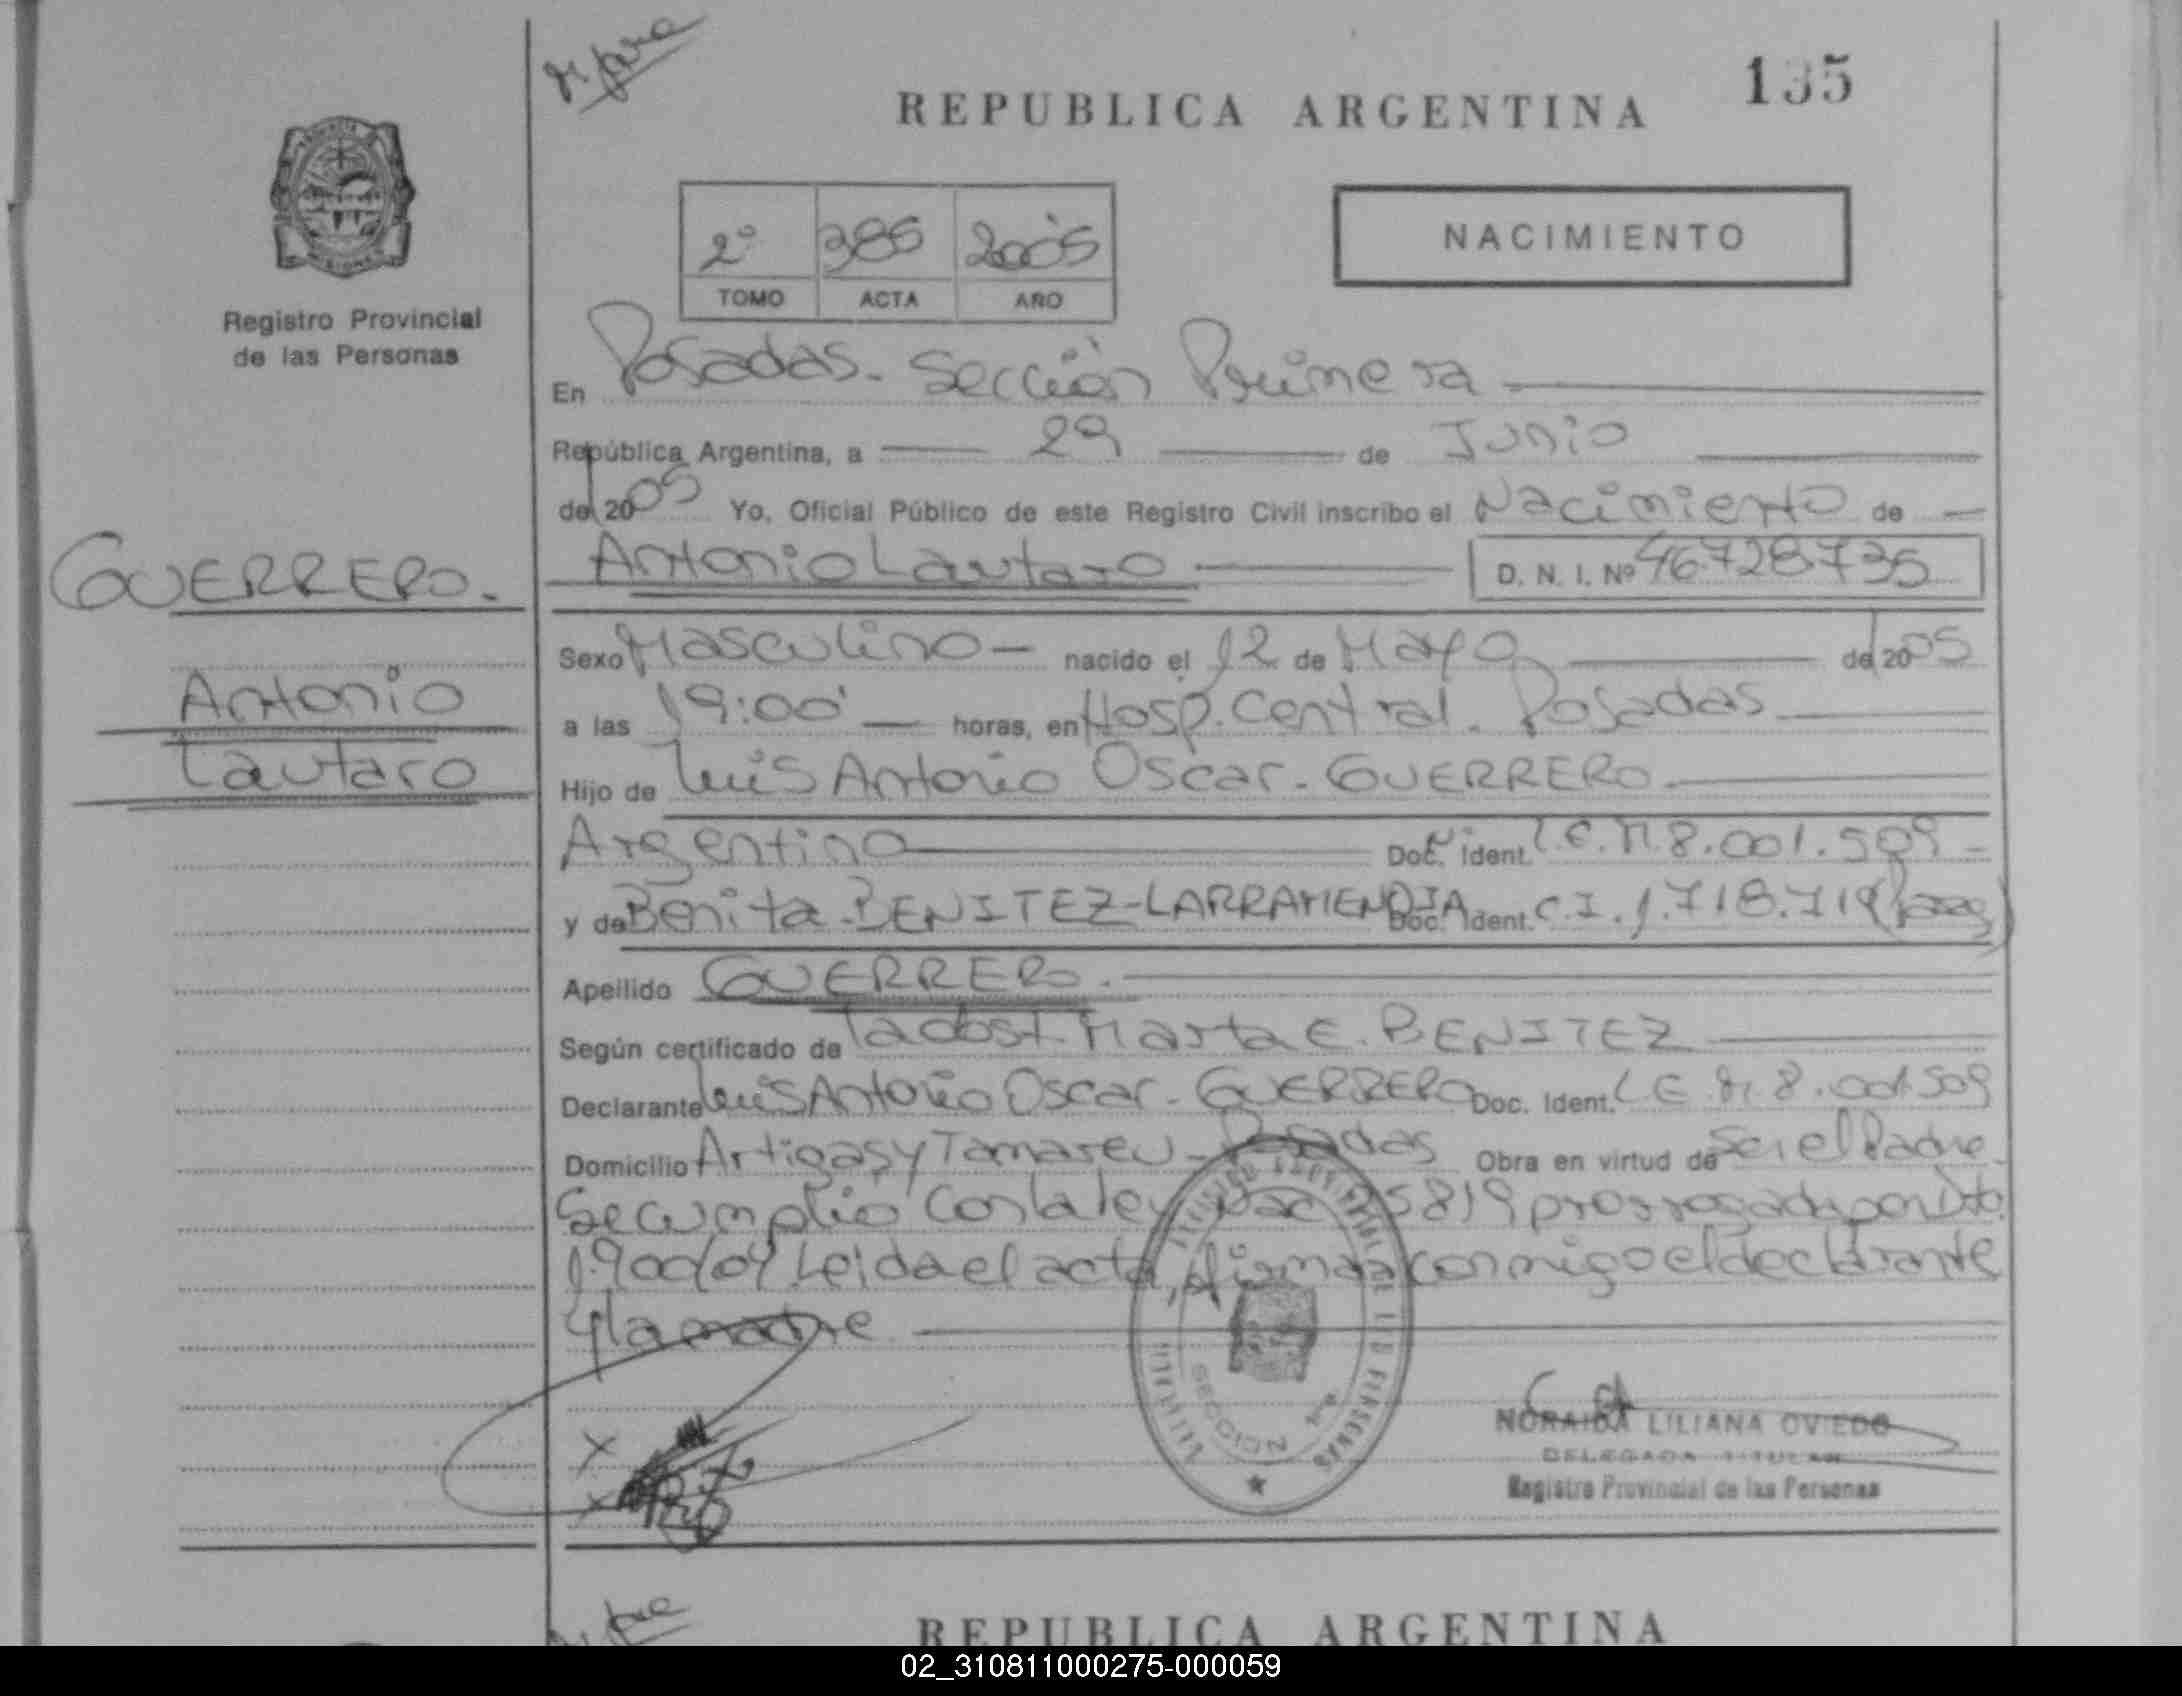 REPUBLICA ARGENTINA
135
Registro Provincial
de las Personas
2º 385 2005
TOMO ACTA AÑO
NACIMIENTO
En Posadas. Sección Primera
República Argentina, a 29 de Junio
del 2005 Yo, Oficial Público de este Registro Civil inscribo el Nacimiento de
Antonio Lautaro D. N. I. Nº 46728735
GUERRERO.
Antonio
Lautaro
Sexo Masculino nacido el 12 de Mayo del 2005
a las 19:00' horas, en Hosp. Central. Posadas
Hijo de Luis Antonio Oscar. GUERRERO
Argentino Doc. Ident. L.E. M. 8.001.509
y de Benita. BENITEZ-LARRAMENDIA Doc. Ident. C.I. 1.718.719
Apellido GUERRERO.
Según certificado de La obst. Marta E. BENITEZ
Declarante Luis Antonio Oscar. GUERRERO Doc. Ident. L E M. 8.001.509
Domicilio Artigas y Tamareu - Posadas Obra en virtud de Ser el Padre
Se cumplio con la ley Nac 25819 prorrogada por Dto.
1900/04 Leida el acta, firma conmigo el declarante
y la madre
SECCION
NORAIDA LILIANA OVIEDO
DELEGADA TITULAR
Registro Provincial de las Personas
REPUBLICA ARGENTINA
02_310811000275-000059